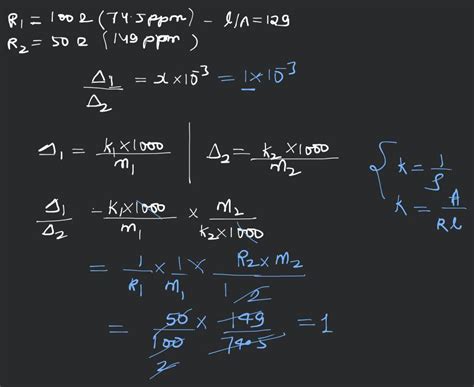 R₁ = 100 Ω (74.5 ppm) - l/A = 129
R₂ = 50 Ω (149 ppm)
Δ₁/Δ₂ = x × 10⁻³ = 1 × 10⁻³
Δ₁ = K₁ × 1000 / M₁ | Δ₂ = K₂ × 1000 / M₂
K = 1/ρ
K = A/Rl
Δ₁/Δ₂ = K₁ × 1000 / M₁ × M₂ / K₂ × 1000
= 1/R₁ × 1/M₁ × R₂ × M₂ / 1
= 50/100 × 149/74.5 = 1
2